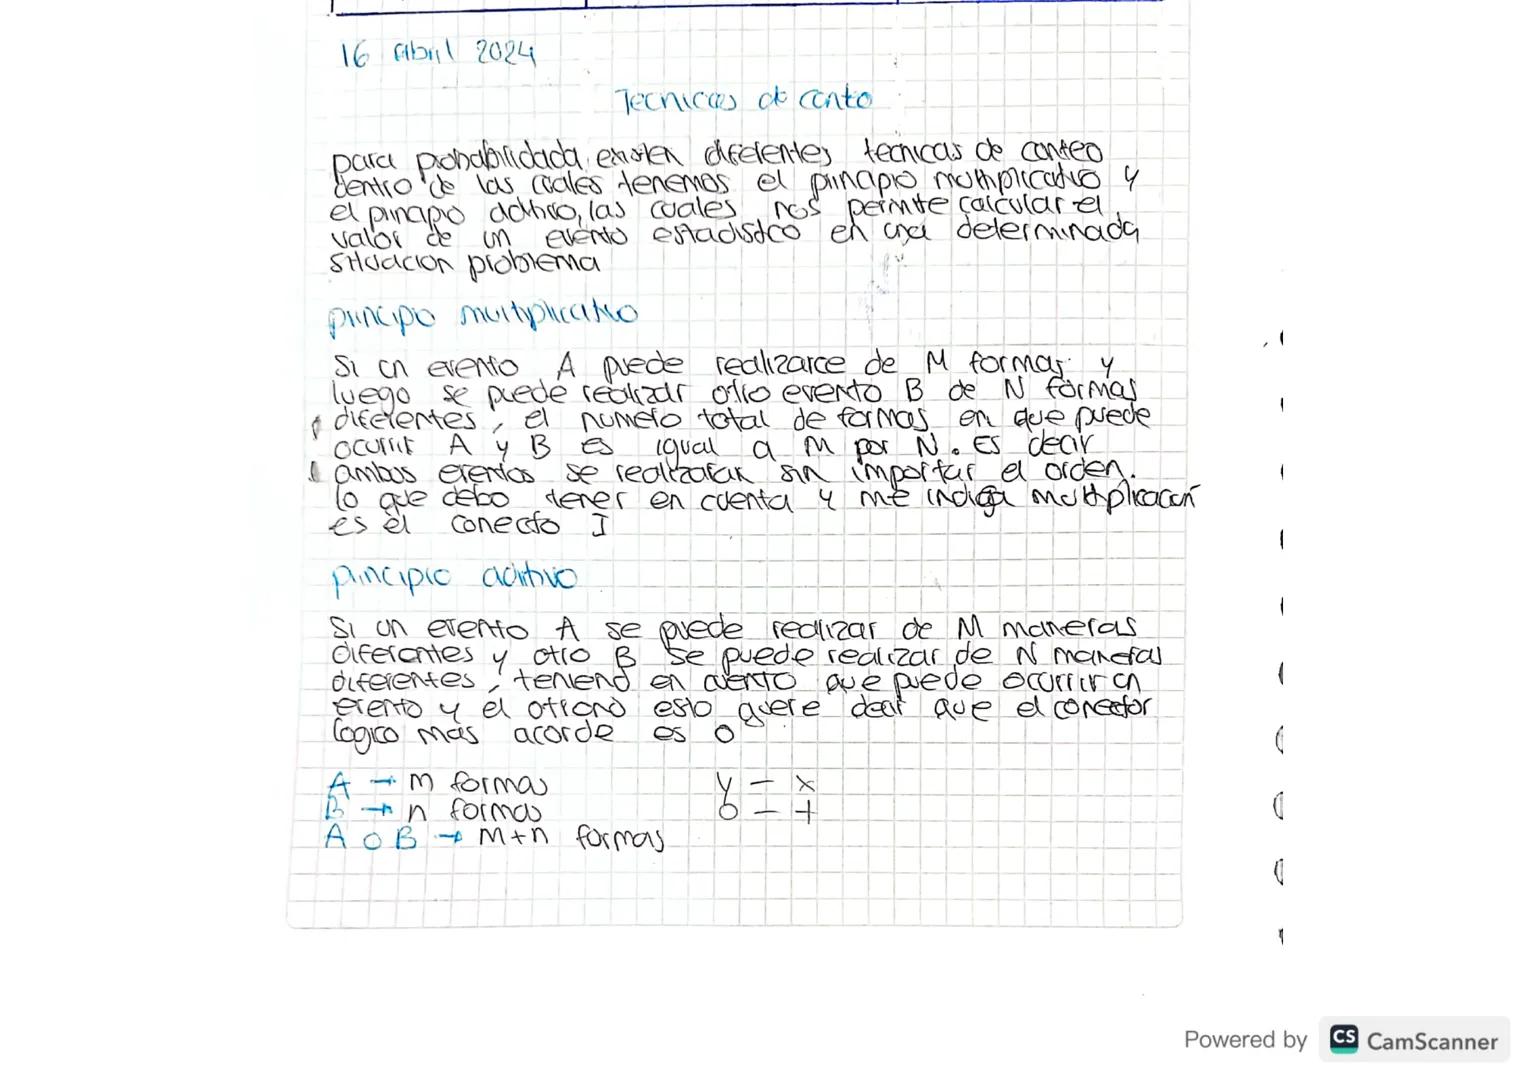 16 Abril 2024
Tecnicas de conto
para probabilidada existen diferentes tecnicas de conteo
dentro de las cuales tenemos el principio multiplicativo y
el principio aditivo, las cuales nos permite calcular el
valor de un evento estadistco en una determinada
situacion problema
principo multiplicativo
Si un evento A puede realizarce de M formas y
luego se puede realizar otro evento B de N formas
diferentes, el numero total de formas en que puede
ocurrir A y B es igual a M por N. Es decir
ambos eventos se realizaran sin importar el orden.
lo que debo tener en cuenta y me indiga multiplicación
es el conecto I
principio aditivo
Si un evento A se puede realizar de M maneras
diferentes y otro B se puede realizar de N maneras
diferentes, teniend en cuento que puede ocurrir un
evento y el otrono esto quere decir que el conector
logico mas acorde es o
A → m formas y - x
B → n formas o - +
A o B → m+n formas
Powered by CS CamScanner